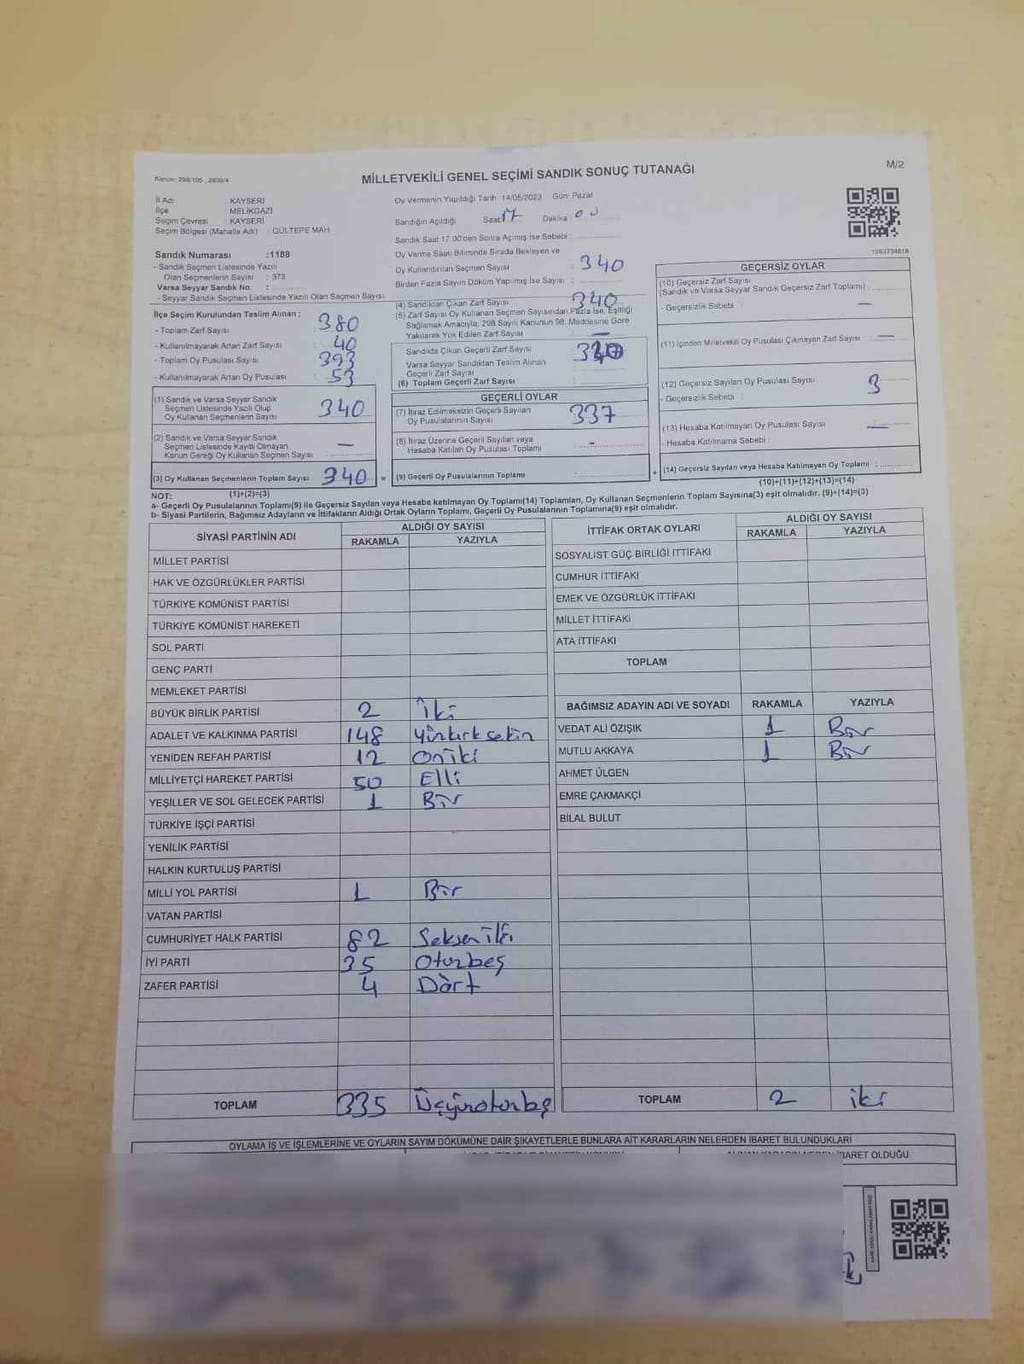 Kanun: 298/105, 2839/4
MİLLETVEKİLİ GENEL SEÇİMİ SANDIK SONUÇ TUTANAĞI
M/2
İl Adı : KAYSERİ
İlçe : MELİKGAZİ
Seçim Çevresi : KAYSERİ
Seçim Bölgesi (Mahalle Adı) : GÜLTEPE MAH.
Sandık Numarası :1188
- Sandık Seçmen Listesinde Yazılı
Olan Seçmenlerin Sayısı : 373
Varsa Seyyar Sandık No :
- Seyyar Sandık Seçmen Listesinde Yazılı Olan Seçmen Sayısı
Oy Vermenin Yapıldığı Tarih 14/05/2023 Gün: Pazar
Sandığın Açıldığı Saat 17 Dakika 00
Sandık Saat 17:00'den Sonra Açılmış İse Sebebi :
Oy Verme Saati Bitiminde Sırada Bekleyen ve
Oy Kullandırılan Seçmen Sayısı : 340
Birden Fazla Sayım Döküm Yapılmış İse Sayısı :
İlçe Seçim Kurulundan Teslim Alınan ;
- Toplam Zarf Sayısı 380
- Kullanılmayarak Artan Zarf Sayısı 40
- Toplam Oy Pusulası Sayısı 393
- Kullanılmayarak Artan Oy Pusulası 53
(1) Sandık ve Varsa Seyyar Sandık
Seçmen Listesinde Yazılı Olup
Oy Kullanan Seçmenlerin Sayısı 340
(2) Sandık ve Varsa Seyyar Sandık
Seçmen Listesinde Kayıtlı Olmayan
Kanun Gereği Oy Kullanan Seçmen Sayısı —
(3) Oy Kullanan Seçmenlerin Toplam Sayısı 340 =
(1)+(2)=(3)
(4) Sandıktan Çıkan Zarf Sayısı 340
(5) Zarf Sayısı Oy Kullanan Seçmen Sayısından Fazla İse, Eşitliği
Sağlamak Amacıyla, 298 Sayılı Kanunun 98. Maddesine Göre
Yakılarak Yok Edilen Zarf Sayısı —
Sandıkta Çıkan Geçerli Zarf Sayısı 340
Varsa Seyyar Sandıktan Teslim Alınan
Geçerli Zarf Sayısı
(6) Toplam Geçerli Zarf Sayısı :
GEÇERLİ OYLAR
(7) İtiraz Edilmeksizin Geçerli Sayılan
Oy Pusulalarının Sayısı 337
(8) İtiraz Üzerine Geçerli Sayılan veya
Hesaba Katılan Oy Pusulası Toplamı -
(9) Geçerli Oy Pusulalarının Toplamı : +
GEÇERSİZ OYLAR
(10) Geçersiz Zarf Sayısı
(Sandık ve Varsa Seyyar Sandık Geçersiz Zarf Toplamı) :
- Geçersizlik Sebebi : —
(11) İçinden Milletvekili Oy Pusulası Çıkmayan Zarf Sayısı —
(12) Geçersiz Sayılan Oy Pusulası Sayısı 3
- Geçersizlik Sebebi :
(13) Hesaba Katılmayan Oy Pusulası Sayısı —
- Hesaba Katılmama Sebebi :
(14) Geçersiz Sayılan veya Hesaba Katılmayan Oy Toplamı :
(10)+(11)+(12)+(13)=(14)
NOT:
a- Geçerli Oy Pusulalarının Toplamı(9) ile Geçersiz Sayılan veya Hesaba katılmayan Oy Toplamı(14) Toplamları, Oy Kullanan Seçmenlerin Toplam Sayısına(3) eşit olmalıdır. (9)+(14)=(3)
b- Siyasi Partilerin, Bağımsız Adayların ve İttifakların Aldığı Ortak Oyların Toplamı, Geçerli Oy Pusulalarının Toplamına(9) eşit olmalıdır.
SİYASİ PARTİNİN ADI
ALDIĞI OY SAYISI
RAKAMLA YAZIYLA
MİLLET PARTİSİ
HAK VE ÖZGÜRLÜKLER PARTİSİ
TÜRKİYE KOMÜNİST PARTİSİ
TÜRKİYE KOMÜNİST HAREKETİ
SOL PARTİ
GENÇ PARTİ
MEMLEKET PARTİSİ
BÜYÜK BİRLİK PARTİSİ 2 İki
ADALET VE KALKINMA PARTİSİ 148 Yüzkırksekin
YENİDEN REFAH PARTİSİ 12 Oniki
MİLLİYETÇİ HAREKET PARTİSİ 50 Elli
YEŞİLLER VE SOL GELECEK PARTİSİ 1 Bir
TÜRKİYE İŞÇİ PARTİSİ
YENİLİK PARTİSİ
HALKIN KURTULUŞ PARTİSİ
MİLLİ YOL PARTİSİ 1 Bir
VATAN PARTİSİ
CUMHURİYET HALK PARTİSİ 82 Seksen İki
İYİ PARTİ 35 Otuzbeş
ZAFER PARTİSİ 4 Dört
TOPLAM 335 Üçyüzotuzbeş
İTTİFAK ORTAK OYLARI
ALDIĞI OY SAYISI
RAKAMLA YAZIYLA
SOSYALİST GÜÇ BİRLİĞİ İTTİFAKI
CUMHUR İTTİFAKI
EMEK VE ÖZGÜRLÜK İTTİFAKI
MİLLET İTTİFAKI
ATA İTTİFAKI
TOPLAM
BAĞIMSIZ ADAYIN ADI VE SOYADI RAKAMLA YAZIYLA
VEDAT ALİ ÖZIŞIK 1 Bir
MUTLU AKKAYA 1 Bir
AHMET ÜLGEN
EMRE ÇAKMAKÇI
BİLAL BULUT
TOPLAM 2 iki
OYLAMA İŞ VE İŞLEMLERİNE VE OYLARIN SAYIM DÖKÜMÜNE DAİR ŞİKAYETLERLE BUNLARA AİT KARARLARIN NELERDEN İBARET BULUNDUKLARI
İBARET OLDUĞU